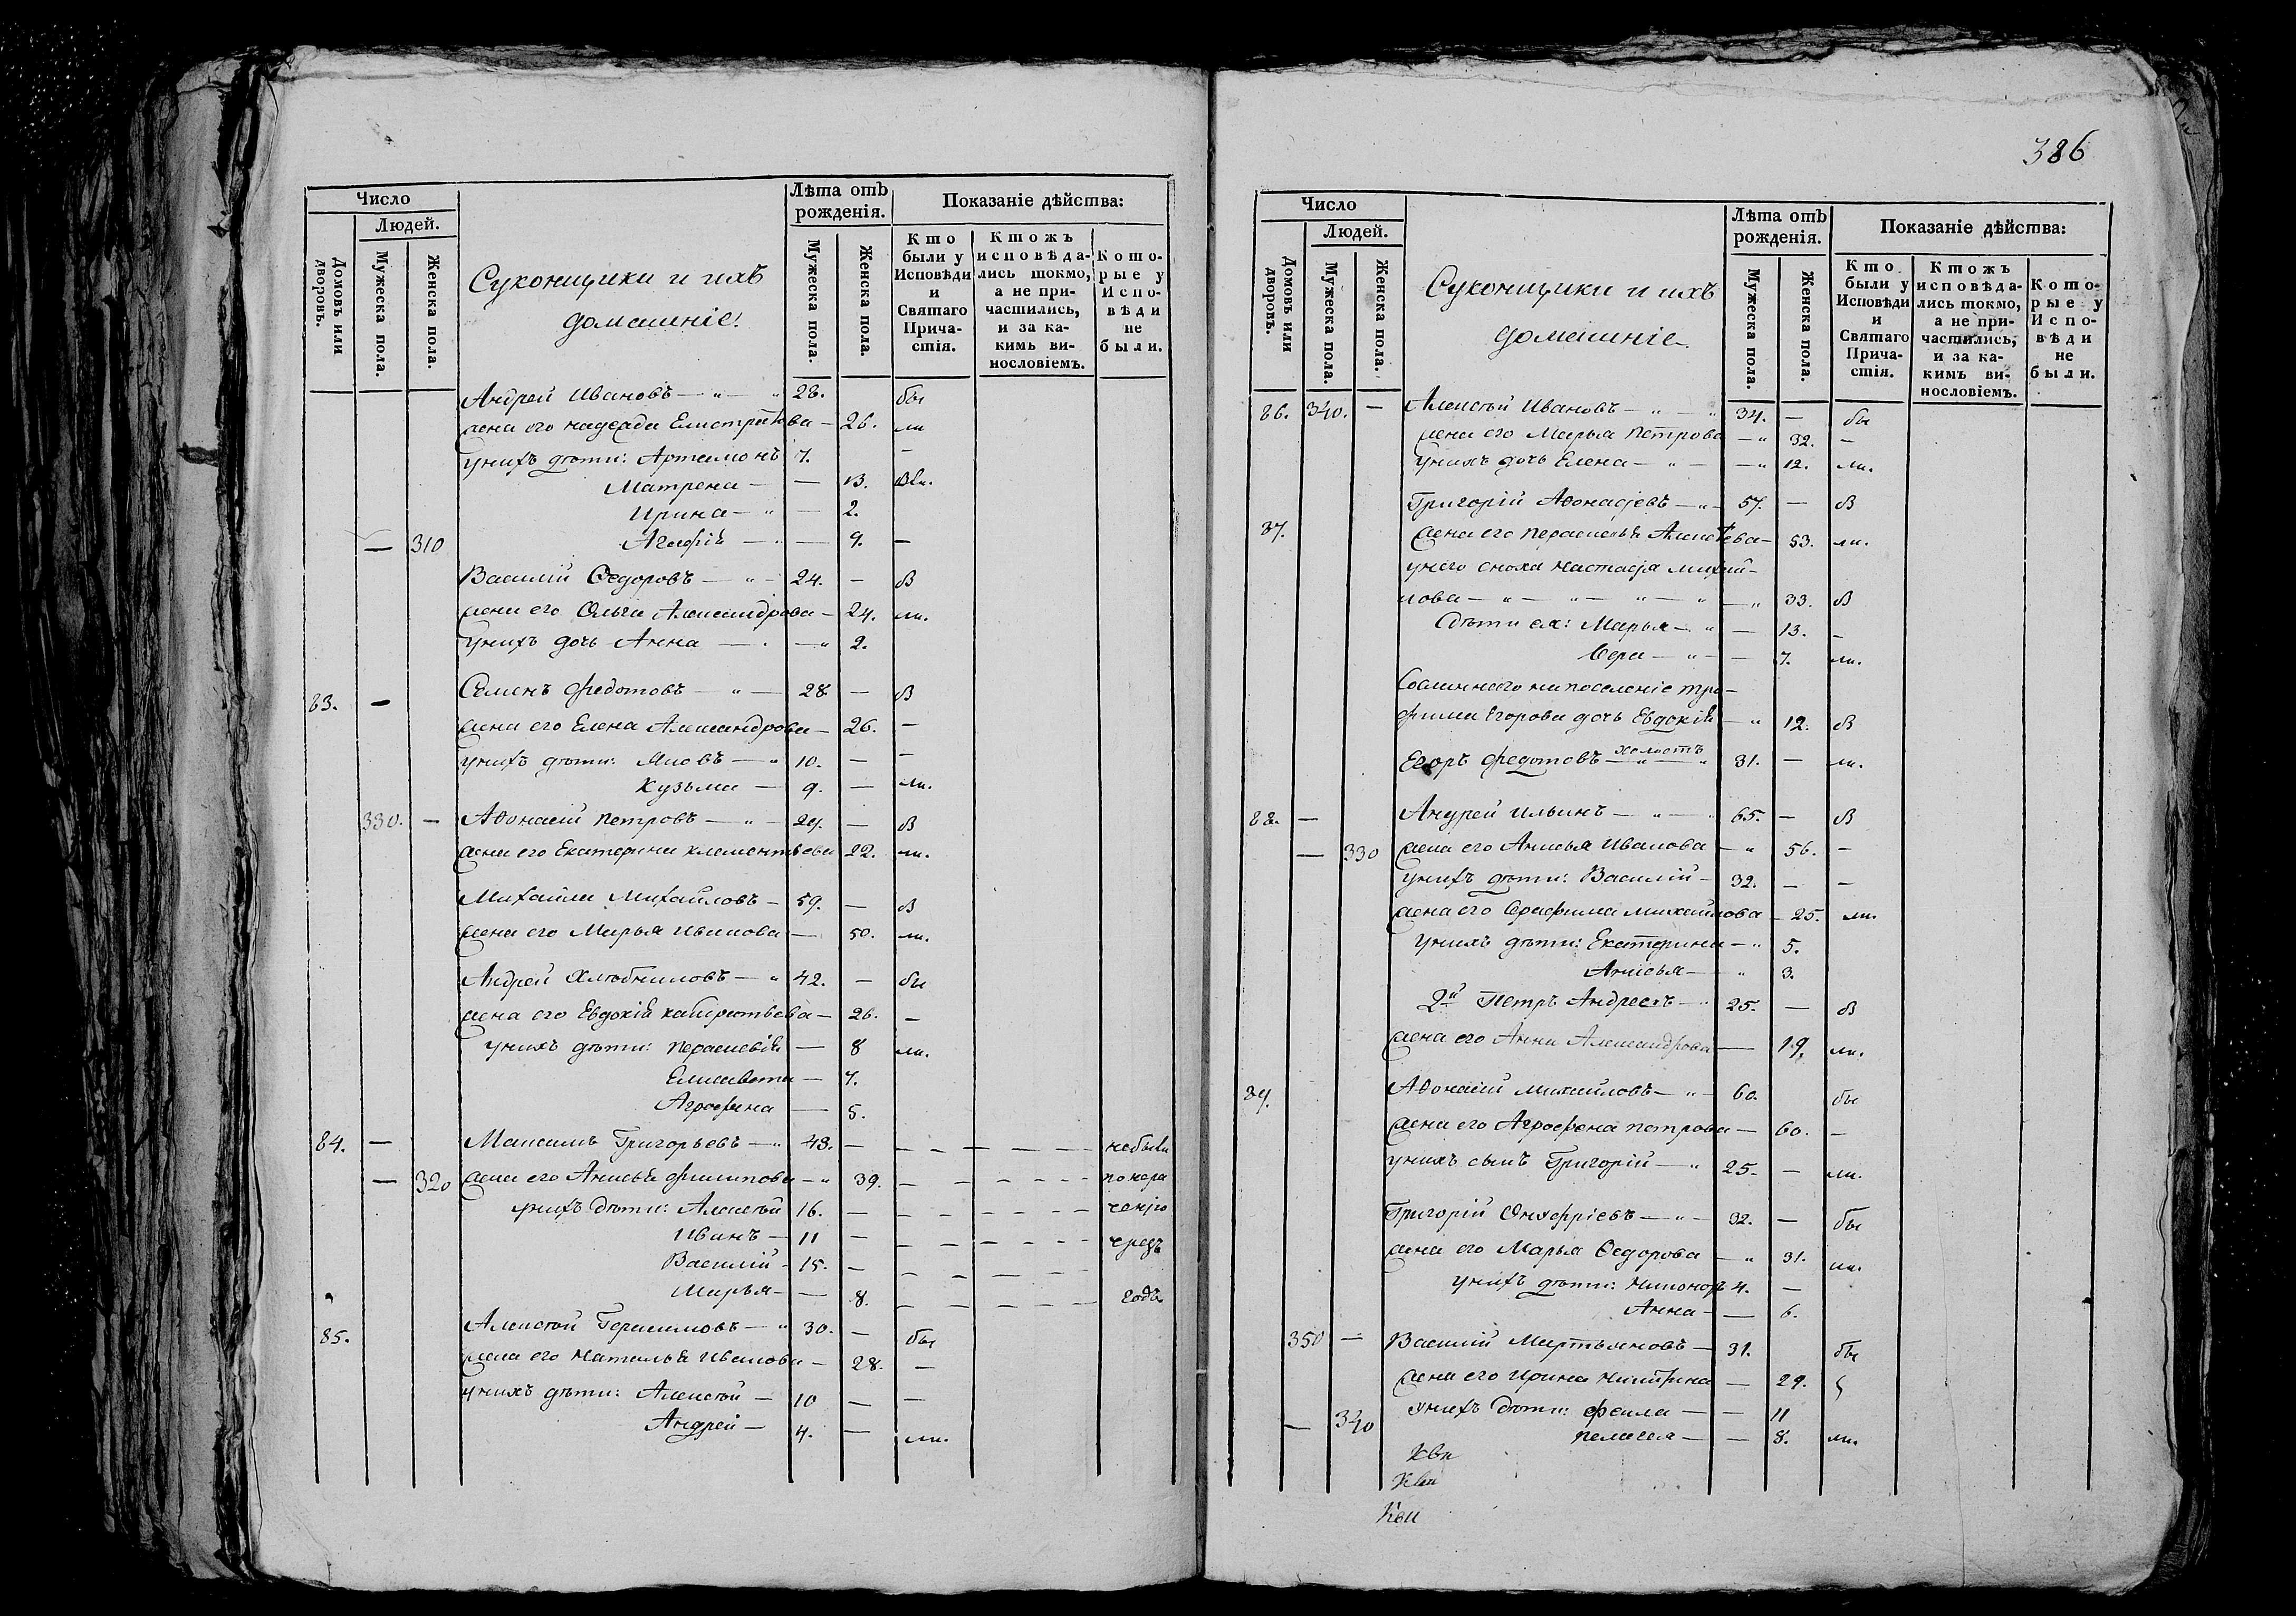 Число
Людей.
Домовъ или дворовъ.
Мужеска пола.
Женска пола.
Суконщики и ихъ
домашніе:
Лѣта отъ
рожденія.
Мужеска пола.
Женска пола.
Показаніе дѣйства:
Кто были у Исповѣди и Святаго Прича-стія.
Ктожъ исповѣда-лись токмо, а не при-частились, и за ка-кимъ ви-нословіемъ.
Кото-рые у Испо-вѣди не были.
Андрей Ивановъ — „ — „ 28. бы
жена его Надежда Елистратова — 26. ли
у нихъ дѣти: Артамонъ 7. —
Матрена — — 13.
Ирина — „ — 2.
— 310 Агафія — „ — 9. —
Василій Ѳедоровъ — „ — 24. — б
жена его Ольга Александрова — 24. ли.
у нихъ дочь Анна — — „ 2.
83. — Семенъ Федотовъ — „ — 28 — б
жена его Елена Александрова — 26. —
у нихъ дѣти: Яковъ — „ 10. — —
Кузьма — 9. — ли.
330. — Аѳонасій Петровъ — „ — 29. — б
жена его Екатерина Клементьева 22. ли.
Михаила Михайловъ — 59. — б
жена его Марья Иванова — 50. ли.
Андрей Хлѣбниковъ — „ 42. — бы
жена его Евдокія — 26. —
у нихъ дѣти: Парасковія — 8 ли.
Елисавета — 7.
Агрофена — 5.
84. — Максимъ Григорьевъ — „ 43. — — — — — небыли
— 320 жена его Анисья Филипова — „ 39. — — — — —
у нихъ дѣти: Алексѣй 16. — — — — —
Иванъ — 11 — — — — — чрезъ
Василій — 15. — — — —
Марья — — 8. — — — — годъ
85. Алексѣй Герасимовъ — „ 30. — бы
жена его Наталья Иванова — 28. —
у нихъ дѣти: Алексѣй — 10 — —
Андрей — 4. — ли.
386
Число
Людей.
Домовъ или дворовъ.
Мужеска пола.
Женска пола.
Суконщики и ихъ
домашніе
Лѣта отъ
рожденія.
Мужеска пола.
Женска пола.
Показаніе дѣйства:
Кто были у Исповѣди и Святаго Прича-стія.
Ктожъ исповѣда-лись токмо, а не при-частились, и за ка-кимъ ви-нословіемъ.
Кото-рые у Испо-вѣди не были.
86. 340. — Алексѣй Ивановъ — „ — „ 34. — бы
жена его Марья Петрова — „ 32. —
у нихъ дочь Елена — „ — — „ 12. ли.
Григорій Аѳонасьевъ — „ — 57. — б
87. жена его Парасковья Алексѣева — 53. ли.
у него сноха Настасья Михай-
лова — „ — „ — „ — „ — „ 33. б
дѣти ея: Марья — „ — 13. —
Вера — „ — — 7. ли.
Сосланнаго на поселеніе Тро-
фима Егорова дочь Евдокія — „ 12. б
Егоръ Федотовъ холостъ 31. — ли.
88. — Андрей Ильинъ — „ — „ 65. — б
— 330 жена его Анисья Иванова — „ 56. —
у нихъ дѣти: Василій — 32. — —
жена его Серафима Михайлова — 25. ли.
у нихъ дѣти: Екатерина — „ 5.
Анисья — „ 3.
2й Петръ Андреевъ — „ 25. — б
жена его Анна Александрова — 19. ли.
89. Аѳонасій Михайловъ — „ — 60. бы
жена его Агрофена Петрова — 60. —
у нихъ сынъ Григорій — „ 25. — ли.
Григорій Онуфріевъ — „ — 32. — бы
жена его Марья Ѳедорова — „ 31. ли.
у нихъ дѣти: Никоноръ 4. —
Анна — — 6.
350 — Василій Мартьяновъ — 31. бы
жена его Ирина Никитина — 29.
— 340 у нихъ дѣти: Фекла — — 11
Пелагея — — 8. ли.